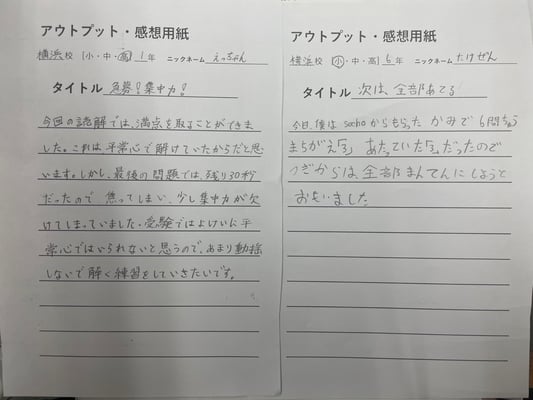 アウトプット・感想用紙
横浜校 小・中・高 1年 ニックネーム えっちゃん
タイトル 急募!集中力!
今回の読解では、満点を取ることができま
した。これは、平常心で解けていたからだと思
います。しかし、最後の問題では、残り30秒
だったので焦ってしまい、少し集中力が欠
けてしまっていました。受験ではよけいに平
常心ではいられないと思うので、あまり動揺
しないで解く練習をしていきたいです。
アウトプット・感想用紙
横浜校 小・中・高 6年 ニックネーム たけぜん
タイトル 次は全部あてる!
今日、僕は sochoからもらったかみで6問ちゅう
まちがえ あたっていた だったので
つぎからは全部まんてんにしようと
おもいました